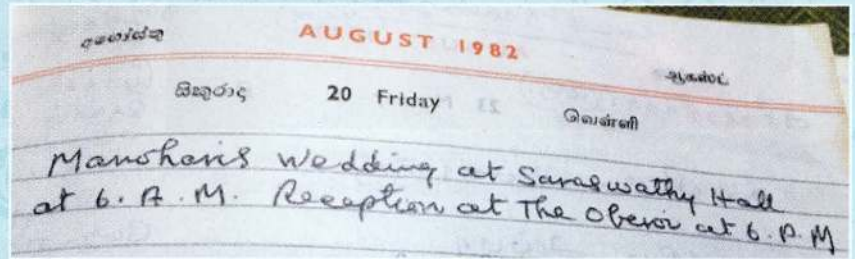 අගෝස්තු AUGUST 1982 ஆகஸ்ட்
සිකුරාදා 20 Friday வெள்ளி
Manohari's Wedding at Saraswathy Hall
at 6. A. M. Reception at The Oberoi at 6. P. M